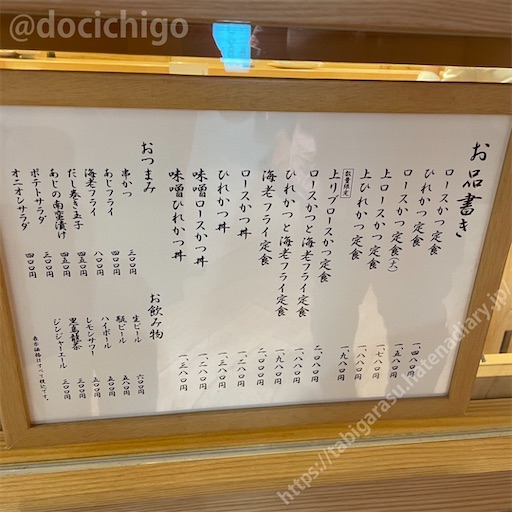 @docichigo
お品書き
ロースかつ定食 一、四八〇円
ひれかつ定食 一、五八〇円
ロースかつ定食(大) 一、七八〇円
上ロースかつ定食 一、八八〇円
上ひれかつ定食 一、九八〇円
数量限定 上リブロースかつ定食 二、〇八〇円
ロースかつと海老フライ定食 一、八八〇円
ひれかつと海老フライ定食 一、九八〇円
海老フライ定食 二、〇〇〇円
ロースかつ丼 一、二八〇円
ひれかつ丼 一、三八〇円
味噌ロースかつ丼 一、二八〇円
味噌ひれかつ丼 一、三八〇円
おつまみ
串かつ 三〇〇円
あじフライ 四〇〇円
海老フライ 八〇〇円
だし巻き玉子 四五〇円
あじの南蛮漬け 四五〇円
ポテトサラダ 三〇〇円
オニオンサラダ 四〇〇円
お飲み物
生ビール 六〇〇円
瓶ビール 五八〇円
ハイボール 五〇〇円
レモンサワー 五〇〇円
黒烏龍茶 三〇〇円
ジンジャーエール 三〇〇円
表示価格はすべて税込です。
https://tabigarasu.hatenadiary.jp/